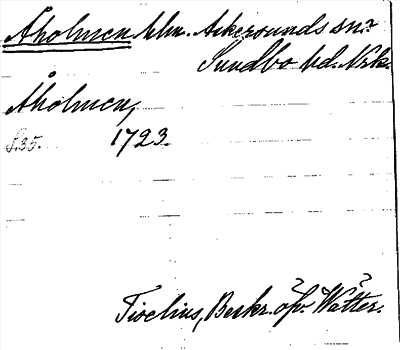 Åholmen hlm. Askersunds sn?
Sundbo hd. Nrk.
Åholmen,
S.35. 1723.
Tiselius, Beskr. öfv. Wätter.